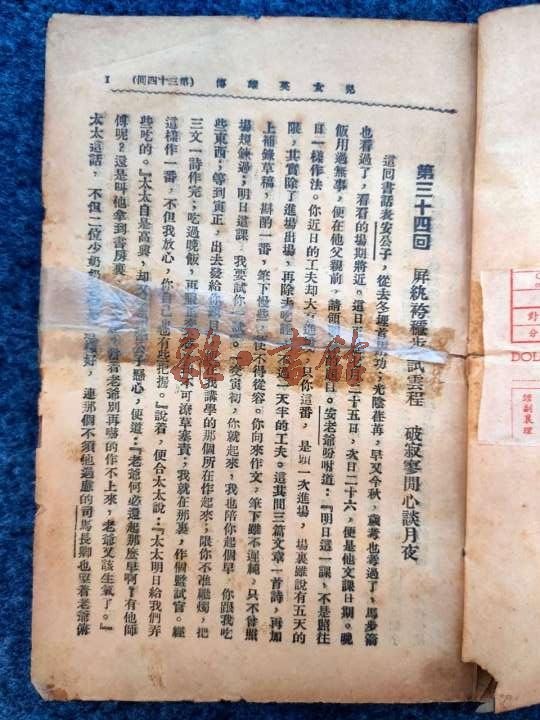 兒女英雄傳 (第三十四回) 1
第三十四回 屏紈袴穩步試雲程 破寂寥閒心談月夜
這回書話表安公子,從去冬埋首用功,光陰荏苒,早又今秋,歲考也考過了,馬步箭
也看過了,看看的場期將近。這日正是七月二十五日,次日二十六,便是他文課日期。晚
飯用過無事,便在他父親前,請領明日的題目。安老爺吩咐道:『明日這一課,不是照往
日一樣作法。你近日的工夫却大有進境,只你這番,是頭一次進場,場裏雖說有五天的
限,其實除了進場出場,再除去吃睡,不過一天半的工夫。這其間三篇文章一首詩,再加
上補錄草稿,斟酌一番,筆下慢些,便不得從容。你向來作文,筆下雖不遲純,只不曾照
場規鍊過;明日這課,我要試你一試。一交寅初,你就起來,我也陪你起個早,你跟我吃
些東西;等到寅正,出去發給你題目,便在我講學的那個所在作起來;限你不准繼燭,把
三文一詩作完;吃過晚飯,再謄正交卷。却不可潦草塞責;我就在那裏,作個監試官。經
這樣作一番,不但我放心,你自己也有些把握。』說着,便合太太說:『太太明日給我們弄
些吃的。』太太自是高興,却又懸心,便道:『老爺何必還起那麼早啊?有他師
傅呢?還是叫他拿到書房裏看着老爺別再嚇的作不上來,老爺又該生氣了。』
太太這話,不但二位少奶奶好,連那個不須他過慮的司馬長卿也望着老爺俯
對
分
DOL